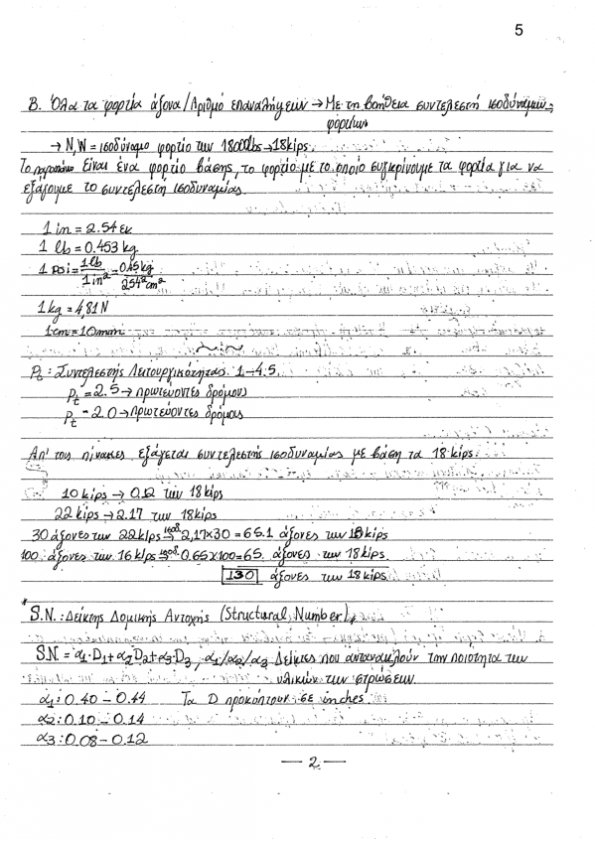 5
B. Όλα τα φορτία άξονα/Αριθμό επαναλήψεων → Με τη βοήθεια συντελεστή ισοδύναμων
φορτίων
→ N,W = ισοδύναμο φορτίο των 18000lbs→18kips.
Το παραπάνω είναι ένα φορτίο βάσης, το φορτίο με το οποίο συγκρίνουμε τα φορτία για να
εξάγουμε το συντελεστή ισοδυναμίας.
1 in = 2.54 εκ
1 lb = 0.453 kg
1 psi = 1 lb / 1 in² = 0.45 kg / 2.54² cm²
1 kg = 4,81 N
1 cm = 10mm
Pt : Συντελεστής Λειτουργικότητας. 1-4.5
Pt = 2.5 → πρωτεύοντες δρόμους
Pt = 2.0 → πρωτεύοντες δρόμους
Απ' τους πίνακες εξάγεται συντελεστής ισοδυναμίας με βάση τα 18 kips.
10 kips → 0.12 των 18 kips
22 kips → 2.17 των 18kips
30 άξονες των 22 kips ισοδ.→ 2,17×30 = 65.1 άξονες των 18 kips
100 άξονες των 16 kips ισοδ.→ 0.65×100 = 65. άξονες των 18 kips.
130 άξονες των 18 kips
* S.N. : Δείκτης Δομικής Αντοχής (Structural Number).
S.N = α1·D1+α2D2+α3·D3, α1/α2/α3 Δείκτες που αντανακλούν την ποιότητα των
υλικών των στρώσεων.
α1: 0.40 – 0.44 Τα D προκύπτουν σε inches.
α2: 0.10 – 0.14
α3: 0.08 – 0.12
— 2 —